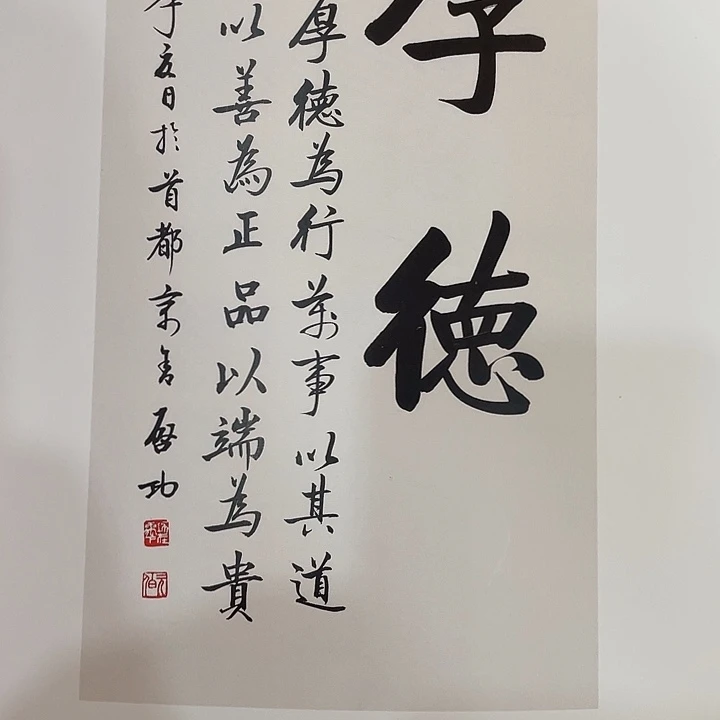 厚德
厚德為行萬事以其道
以善為正品以端為貴
夏日於首都京華啟功